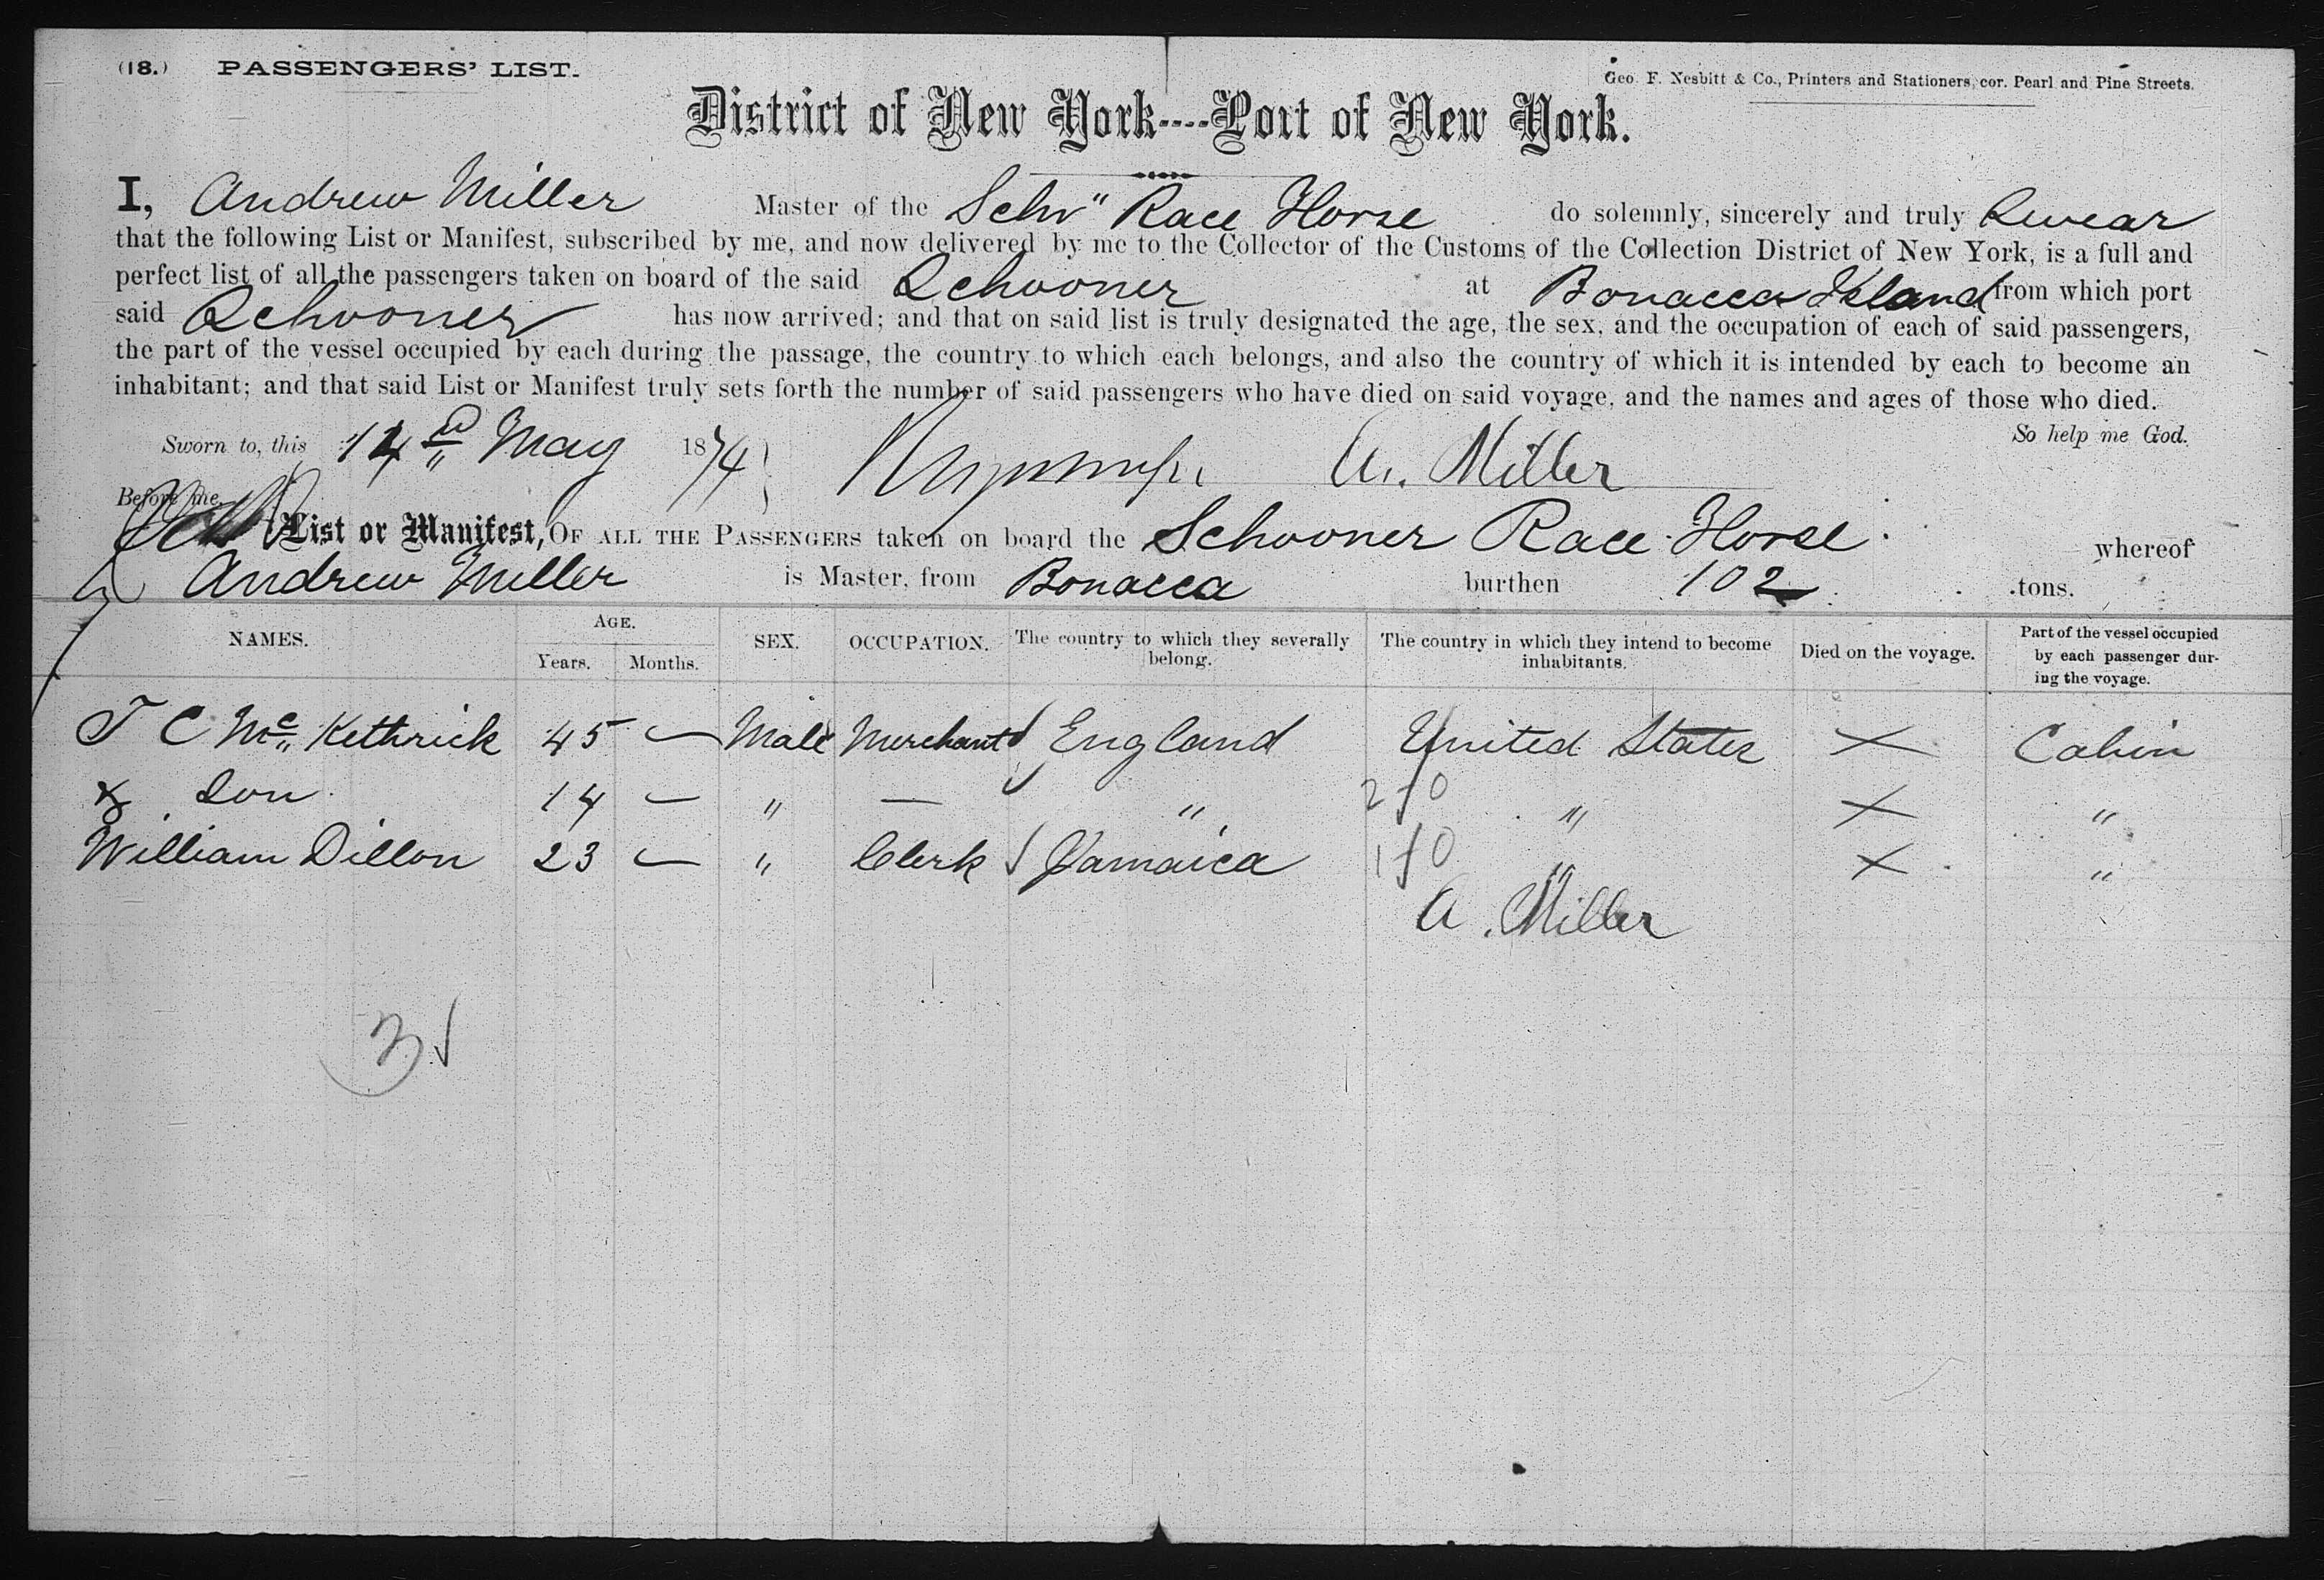 (18.) PASSENGERS' LIST.
Geo. F. Nesbitt & Co., Printers and Stationers, cor. Pearl and Pine Streets.
District of New York----Port of New York.
I, Andrew Miller Master of the Schr" Race Horse do solemnly, sincerely and truly Swear
that the following List or Manifest, subscribed by me, and now delivered by me to the Collector of the Customs of the Collection District of New York, is a full and
perfect list of all the passengers taken on board of the said Schooner at Bonacca Island from which port
said Schooner has now arrived; and that on said list is truly designated the age, the sex, and the occupation of each of said passengers,
the part of the vessel occupied by each during the passage, the country to which each belongs, and also the country of which it is intended by each to become an
inhabitant; and that said List or Manifest truly sets forth the number of said passengers who have died on said voyage, and the names and ages of those who died.
So help me God.
Sworn to, this 14 May 1874 A. Miller
Before me,
List or Manifest, OF ALL THE PASSENGERS taken on board the Schooner Race Horse whereof
Andrew Miller is Master, from Bonacca burthen 102 tons.
NAMES. AGE. Years. Months. SEX. OCCUPATION. The country to which they severally belong. The country in which they intend to become inhabitants. Died on the voyage. Part of the vessel occupied by each passenger during the voyage.
T C Mc Kethrick 45 — Male Merchant England United States X Cabin
& Son 14 — " — " " X "
William Dillon 23 — " Clerk Jamaica " X "
A. Miller
3 √